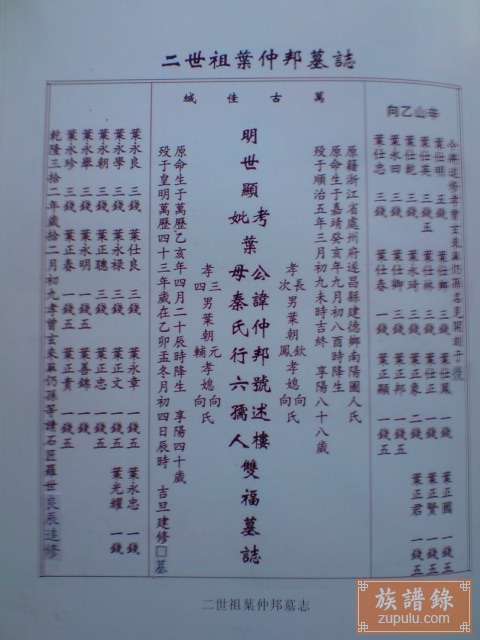 二世祖葉仲邦墓誌
萬古佳城
辛山乙向
今興追修孝曾玄來蘇仍孫名見開列于後
葉仕明 五錢 葉仕鄉 三錢 葉仕鳳 一錢 葉正國 一錢五
葉仕英 三錢五 葉仕林 三錢 葉仕正 一錢 葉正賢 一錢五
葉仕乾 三錢 葉仕琦 三錢 葉正象 二錢 葉正君 一錢五
葉永田 三錢 葉仕卿 三錢 葉正邦 一錢五
葉仕忠 三錢 葉仕春 一錢五 葉正顯 一錢五
原籍浙江省處州府遂昌縣建德鄉南陽國人氏
原命生于嘉靖癸亥年九月初八酉時降生
歿于順治五年三月初九未時吉終 享陽八十八歲
孝長男葉朝欽孝媳向氏
孝次男葉朝鳳孝媳向氏
明世顯考葉公諱仲邦號述樓雙福墓誌
妣母秦氏行六孺人
孝三男葉朝元孝媳向氏
孝四男葉朝輔孝媳向氏
原命生于萬歷乙亥年四月二十辰時降生 享陽四十歲
歿于皇明萬歷四十三年歲在乙卯孟冬月初四日辰時 吉旦建修□墓
葉永良 三錢 葉仕良 三錢 葉永章 一錢五 葉永忠 一錢
葉永學 三錢 葉永祿 三錢 葉正文 一錢五 葉光耀 一錢
葉永朝 三錢 葉正聰 三錢 葉正忠 一錢五
葉永舉 三錢 葉永明 一錢五 葉善錦 一錢
葉永珍 三錢 葉正春 一錢五 葉正貴 一錢五
乾隆三拾二年歲拾二月初九孝曾玄來蘇仍孫等請石匠羅世良辰追修
二世祖葉仲邦墓志
族譜錄
zupulu.com